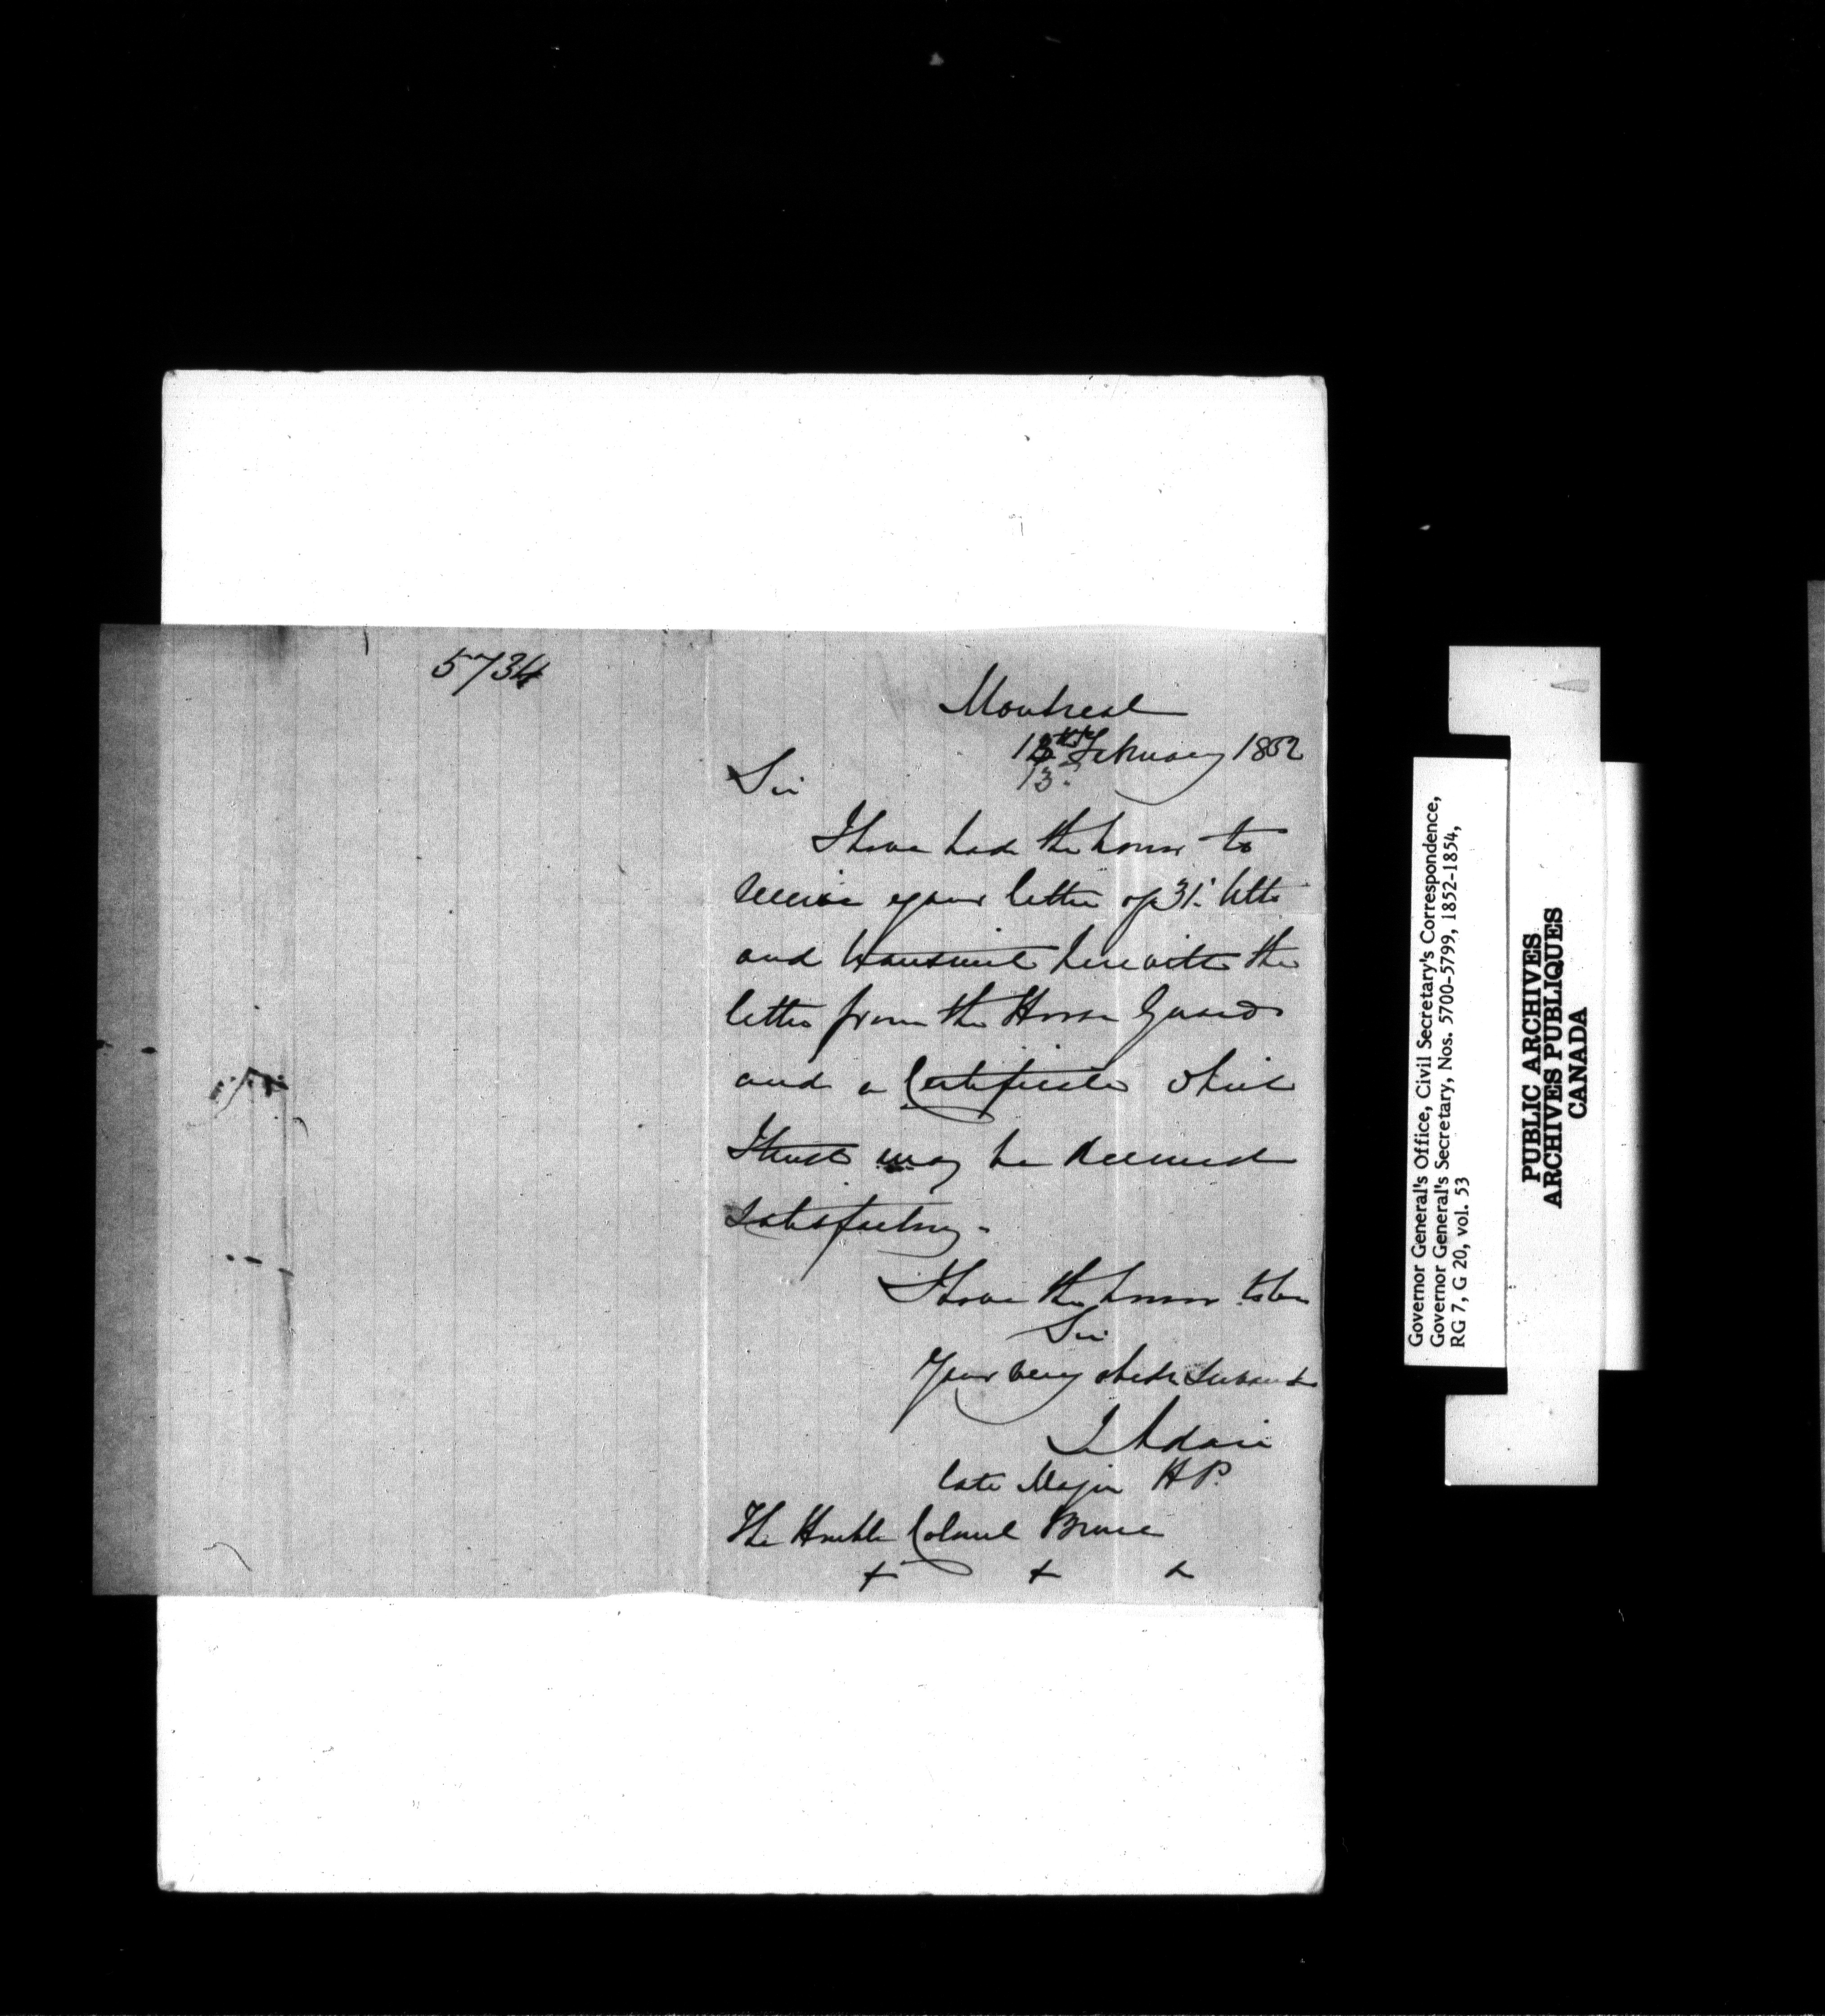 5734
Montreal
13th February 1852
13.
Sir
I have had the honor to
receive your letter of 31. Ulto
and transmit herewith the
letter from the Horse Guards
and a Certificate which
I trust may be deemed
satisfactory.
I have the honor to be
Sir
Your very obedt Servant
Adair
late Major HP.
The Honble Colonel Bruce
+ + +
Governor General's Office, Civil Secretary's Correspondence,
Governor General's Secretary, Nos. 5700-5799, 1852-1854,
RG 7, G 20, vol. 53
PUBLIC ARCHIVES
ARCHIVES PUBLIQUES
CANADA